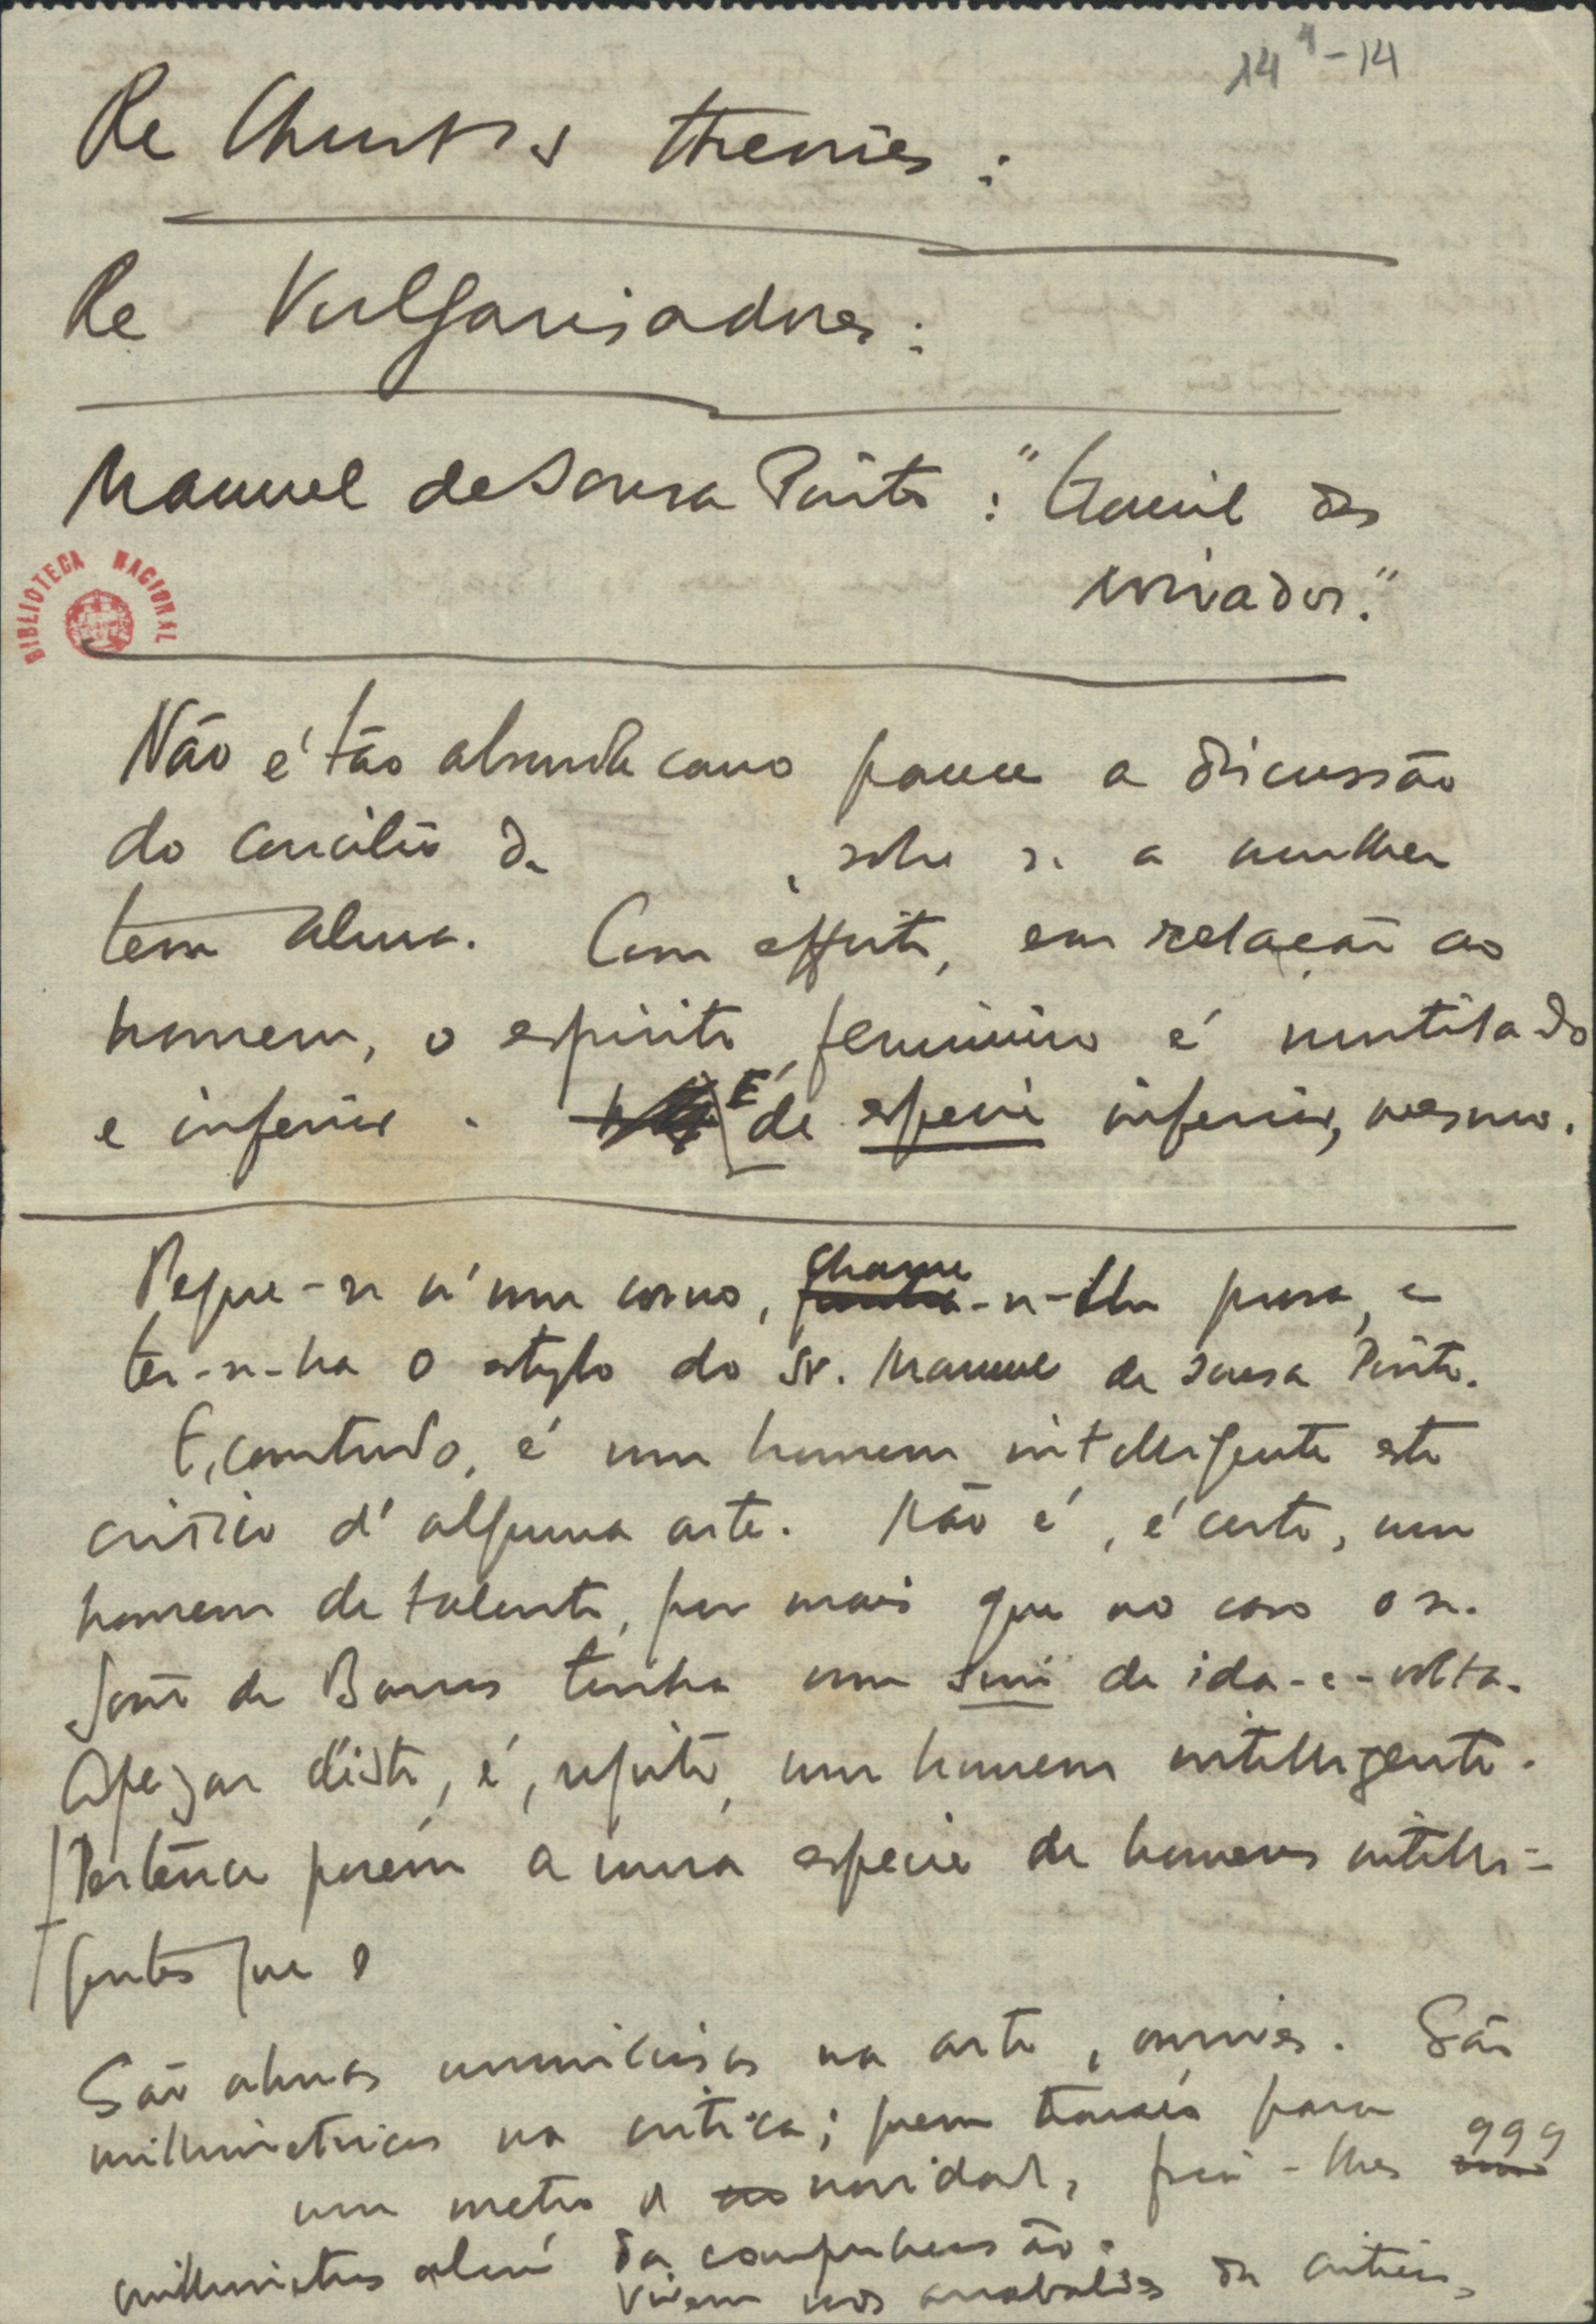 14⁴-14
Re Christ's theories:
Re Vulgarisadores:
Manuel de Sousa Pinto: "
BIBLIOTECA NACIONAL
Não é tão absurda como parece a discussão
do concilio de , sobre se a mulher
tem alma. Com effeito, em relação ao
homem, o espirito feminino é mutilado
e inferior. É de especie inferior, mesmo.
Pegue-se n'um corno, chame-se-lhe prosa, e
ter-se-ha o estylo do Sr. Manuel de Sousa Pinto.
E, comtudo, é um homem intelligente este
critico d'alguma arte. Não é, é certo, um
homem de talento, por mais que no caso o sr.
João de Barros tenha um de ida-e-volta.
Apezar d'isto, é, repito, um homem intelligente.
Pertence porém a uma especie de homens intelli-
gentes que o
São almas na arte, . São
millimetricos na critica; quem para
um metro de novidade, fica-lhes 999
millimetros alem da comprehensão.
Vivem nos arrabaldes da critica,